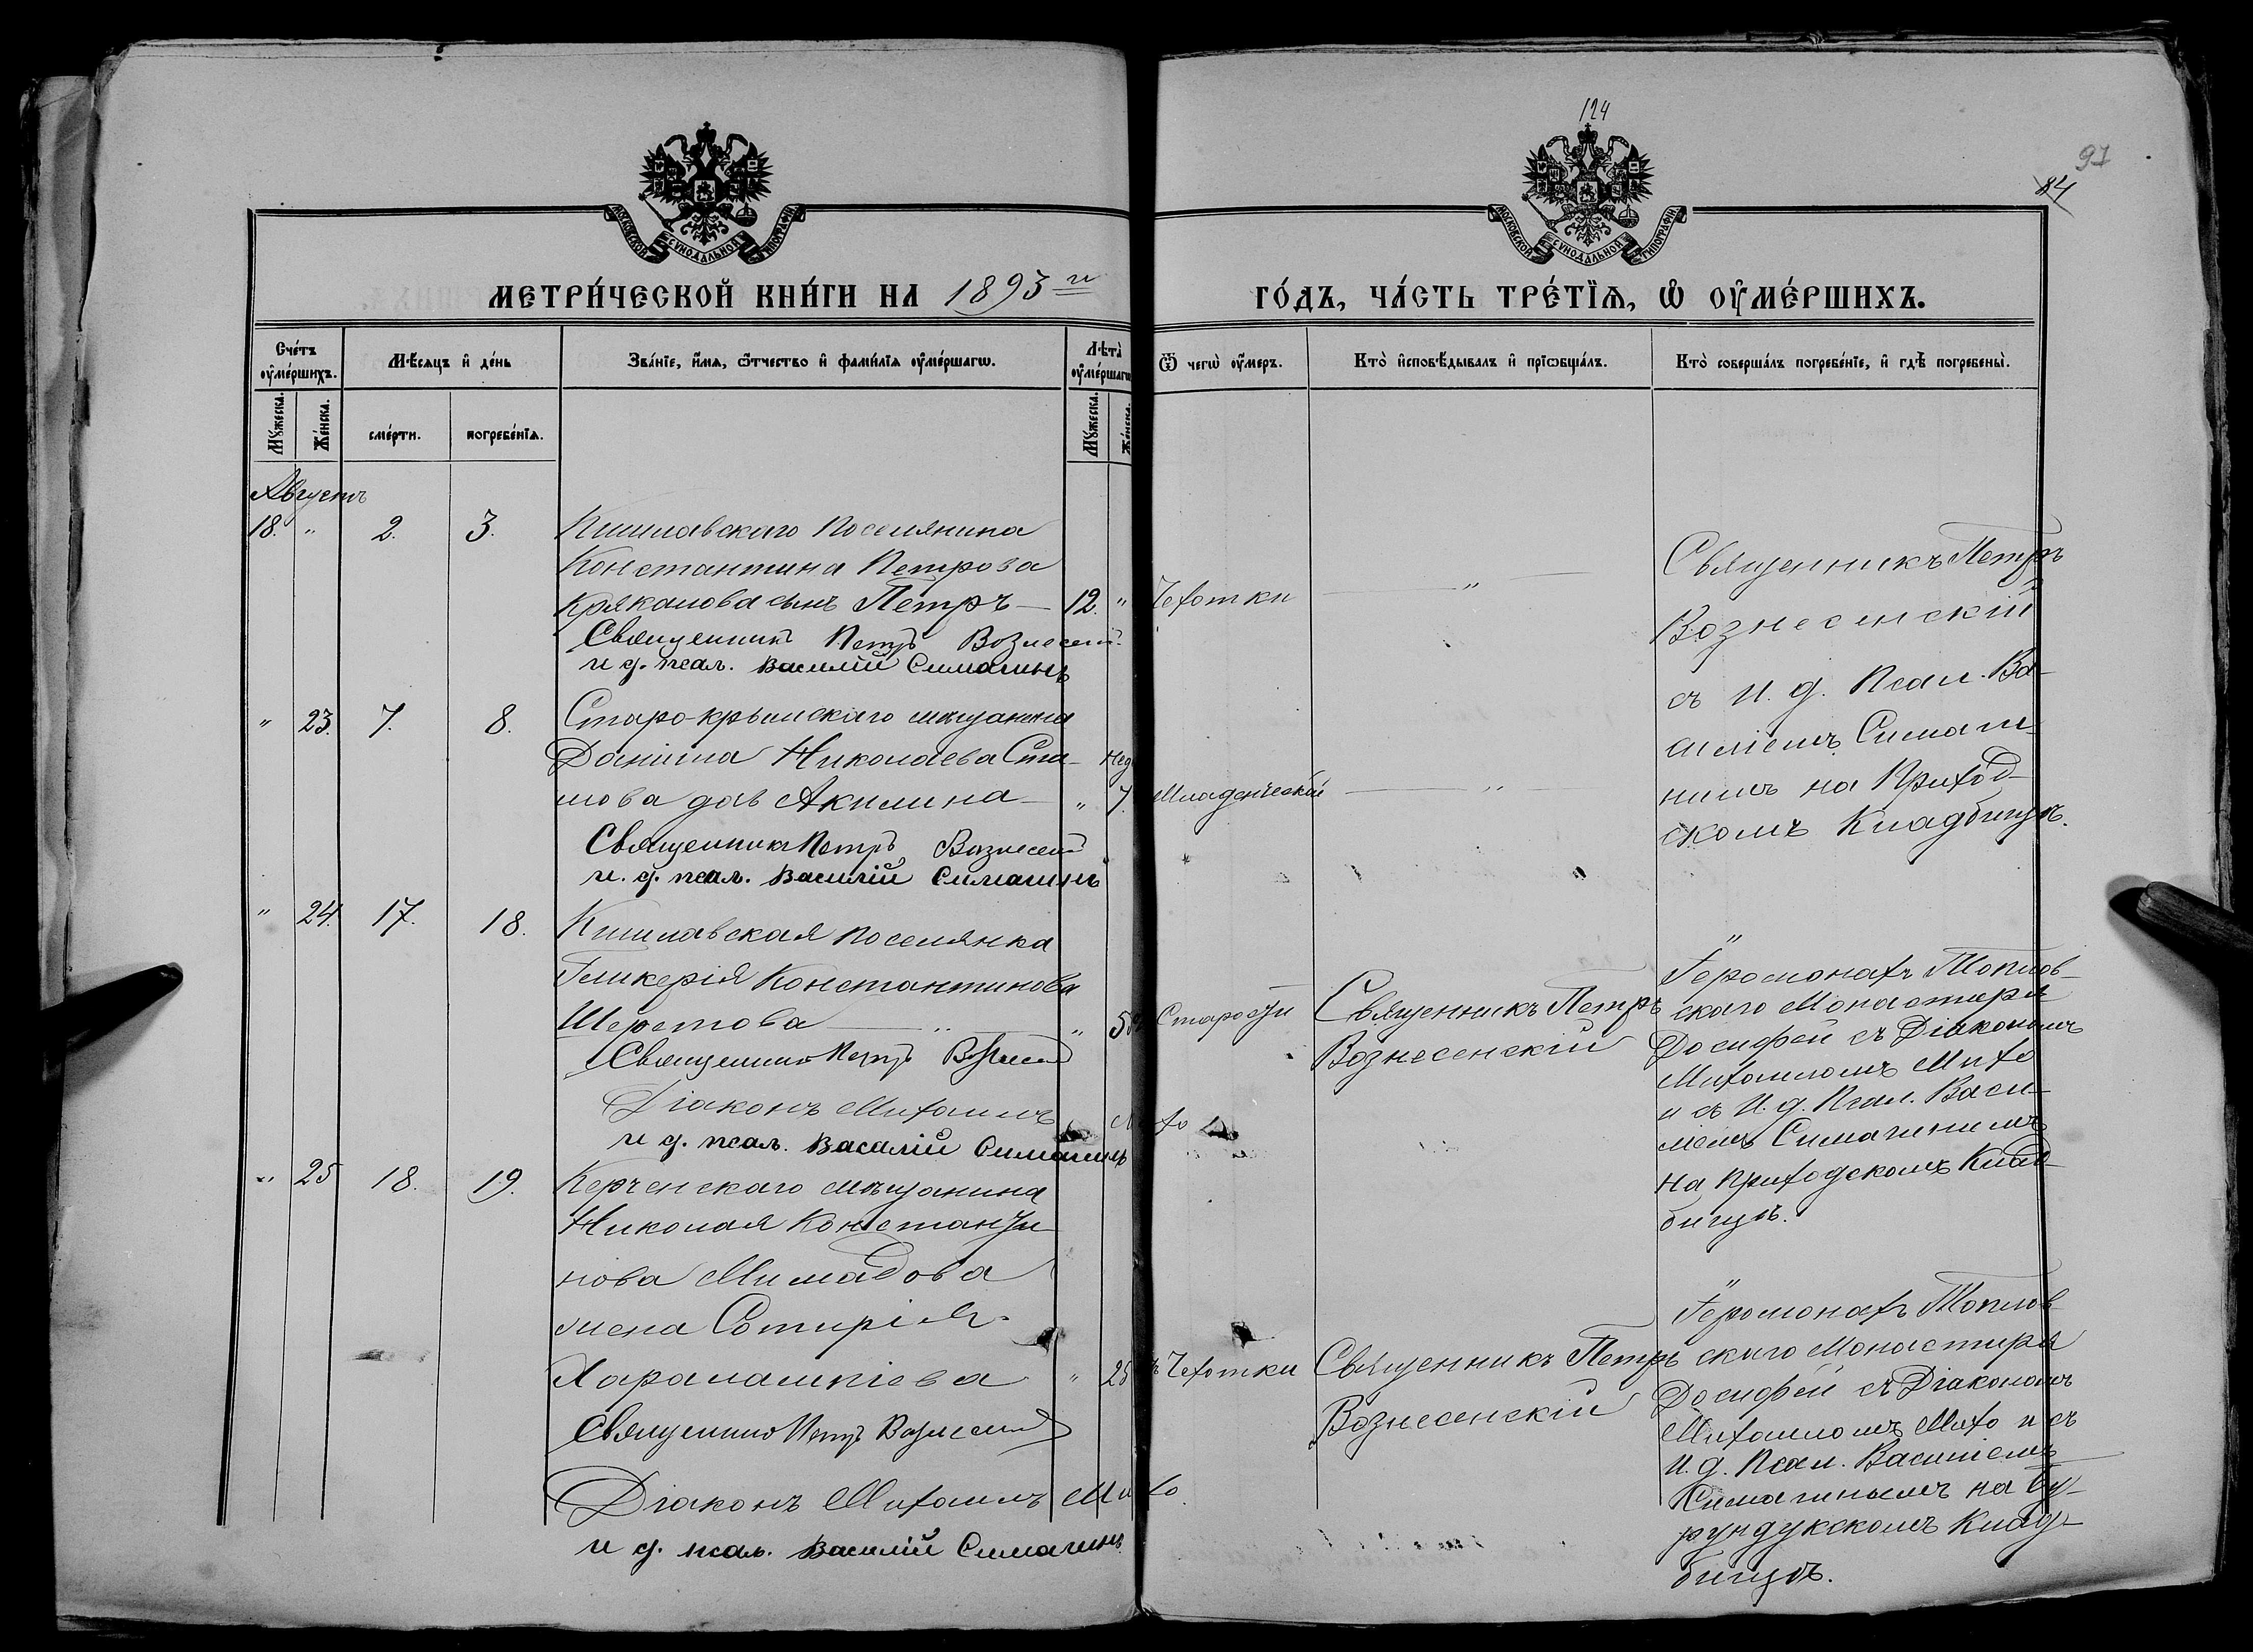 124
97
84
МОСКОВСКОЙ СУНОДАЛЬНОЙ ТИПОГРАФИИ
МОСКОВСКОЙ СУНОДАЛЬНОЙ ТИПОГРАФИИ
МЕТРИ́ЧЕСКОЙ КНИ́ГИ НА 1893 го
ГО́ДЪ, ЧА́СТЬ ТРЕ́ТЇѦ, Ѡ ОУ҆МЕ́РШИХЪ.
Сче́тъ оу҆ме́ршихъ.
Мѣ́сяцъ и҆ де́нь
Зва́нїе, и҆́мѧ, ѻ҆́тчество и҆ фами́лїѧ оу҆ме́ршагѡ.
Лѣ́та оу҆ме́ршагѡ
Ѿ чегѡ̀ оу҆́меръ.
Кто̀ и҆сповѣ́дывалъ и҆ прїѡбща́лъ.
Кто̀ соверша́лъ погребе́нїе, и҆ гдѣ̀ погребены̀.
Му́жеска.
Же́нска.
сме́рти.
погребе́нїѧ.
Му́жеска.
Же́нска.
Августъ
18. " 2. 3. Кишлавскаго поселянина
Константина Петрова
Кряканова сынъ Петръ — 12. "
Священникъ Петръ Вознесен
и д. псал. Василій Симагинъ
Чехотки — " —
Священникъ Петръ
Вознесенскій
съ И. д. Псал. Ва-
силіемъ Симаги-
нимъ на Приход-
скомъ Кладбищѣ.
" 23. 7. 8. Старо-крымскаго мѣщанина
Даніила Николаева Ста-
мова дочь Акилина — " нед 7.
Священникъ Петръ Вознесен
и. д. псал. Василій Симагинъ
Младенческой — "
" 24. 17. 18. Кишлавская поселянка
Гликерія Константинова
Шеретова — " " 5
Священникъ Петръ Вознесен
Діаконъ Михаилъ Михо
и д. псал. Василій Симагинъ
Старости
Священникъ Петръ
Вознесенскій
Іеромонахъ Топлов-
скаго Монастыря
Досифей съ Діакономъ
Михаиломъ Михо
и съ И. д. Псал. Васи-
ліемъ Симагинимъ
на Приходскомъ Клад-
бищѣ.
" 25 18. 19. Керченскаго мѣщанина
Николая Константи-
нова Мимадова
жена Сотирія
Харалампіева " 25
Священникъ Петръ Вознесен
Діаконъ Михаилъ Михо
и д. псал. Василій Симагинъ
Чехотки
Священникъ Петръ
Вознесенскій
Іеромонахъ Топлов-
скаго Монастыря
Досифей съ Діакономъ
Михаиломъ Михо и съ
И. д. Псал. Василіемъ
Симагинымъ на Бу-
рундукскомъ Клад-
бищѣ.